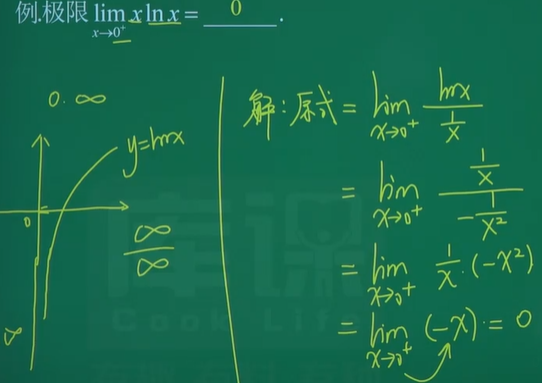 例.极限 lim x ln x = 0 .
x→0⁺
0·∞
y=lnx
0
∞/∞
∞
解:原式 = lim_{x→0⁺} lnx / (1/x)
= lim_{x→0⁺} (1/x) / (-1/x²)
= lim_{x→0⁺} 1/x·(-x²)
= lim_{x→0⁺} (-x) = 0
库课
Cook Life